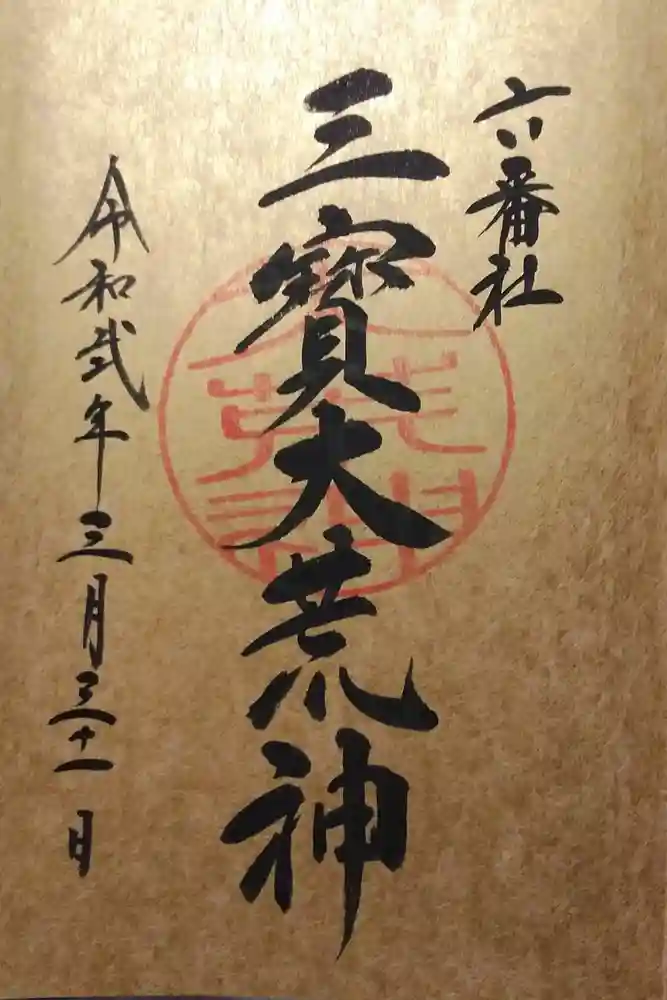 六番社
三寳大荒神
令和弐年三月三十一日
大荒神